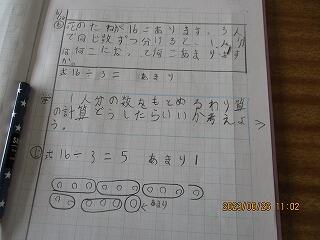 6/26
も 花のたねが16こあります。3人
で同じ数ずつ分けると、1人分
は何こになって何こあまります
か。
式16÷3= あまり
1人分の数をもとめるわり算
の計算どうしたらいいか考えよ
う。
式16÷3=5 あまり1
あまり
2023/06/26 11:02